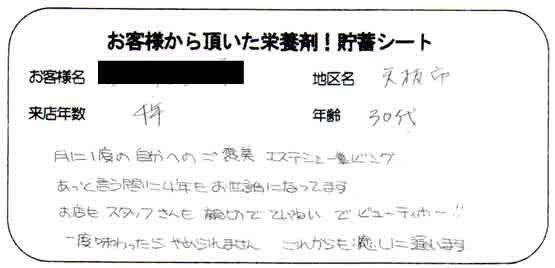 お客様から頂いた栄養剤！貯蓄シート
お客様名 地区名 天板市
来店年数 4年 年齢 30代
月に1度の自分へのご褒美 エステシェービング
あっと言う間に4年もお世話になってます
お店も スタッフさんも 親切で ていねい で ビューティホー!!
一度味わったら やめられません これからも 癒しに通います